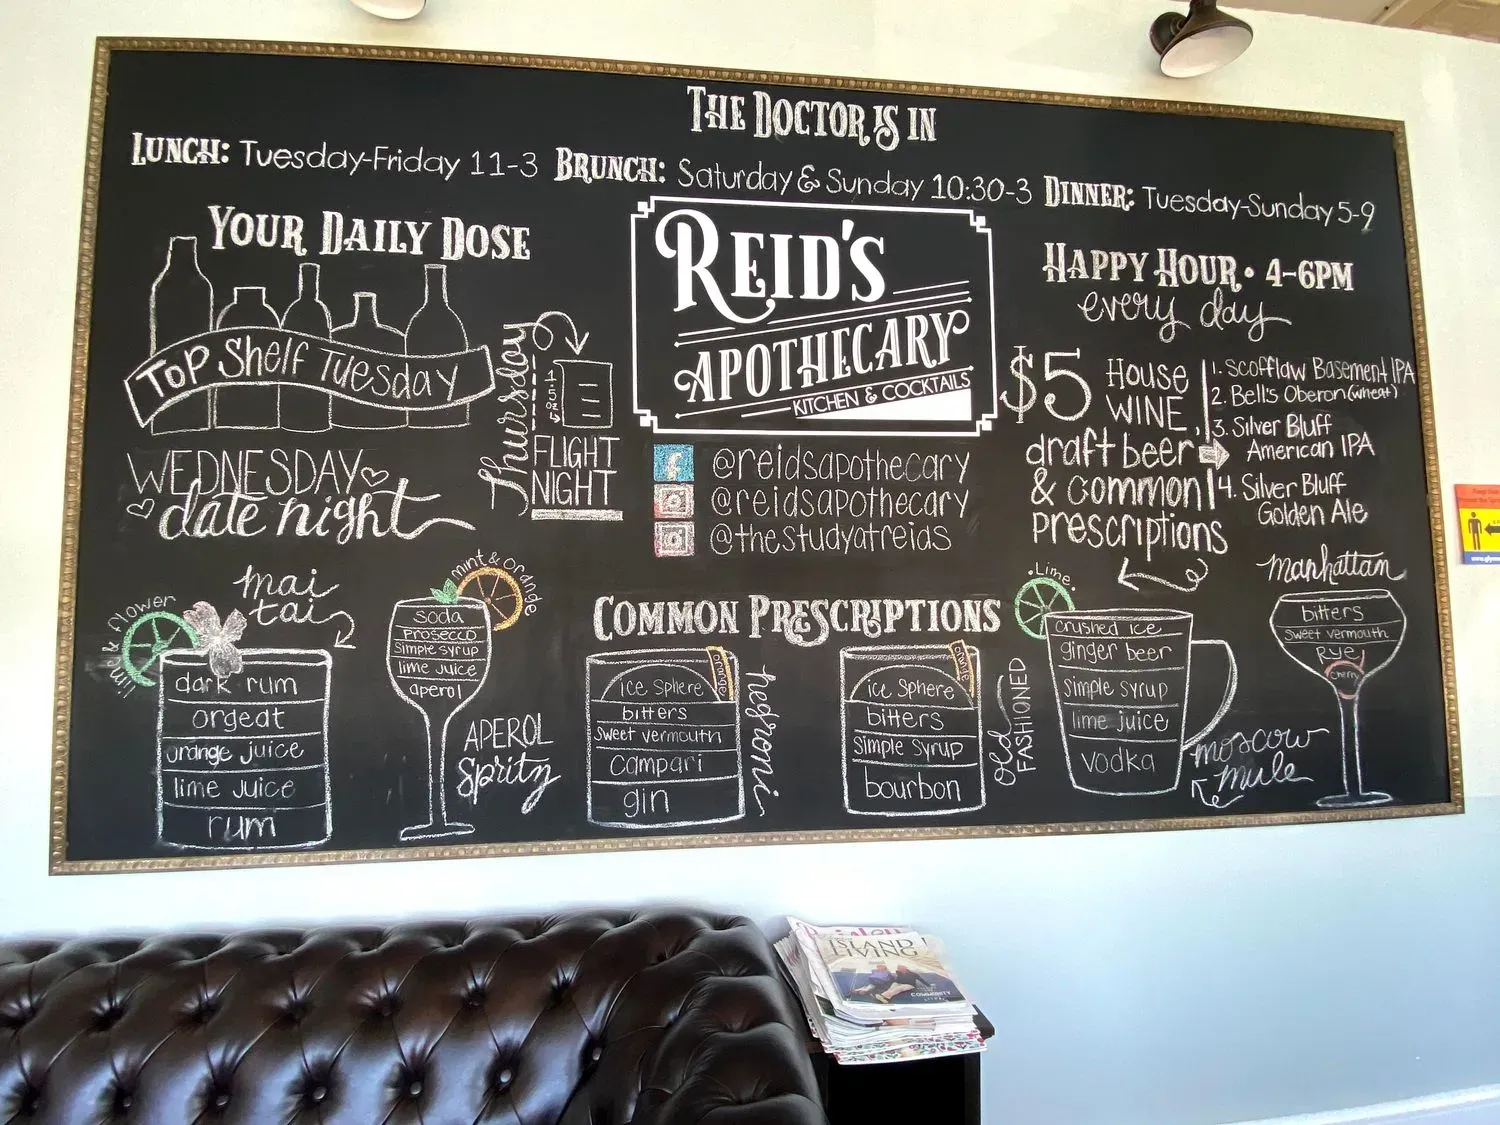 THE DOCTOR IS IN
LUNCH: Tuesday-Friday 11-3 BRUNCH: Saturday & Sunday 10:30-3 DINNER: Tuesday-Sunday 5-9
YOUR DAILY DOSE
Top Shelf Tuesday
WEDNESDAY
date night
Thursday
1.5oz
FLIGHT
NIGHT
REID'S
APOTHECARY
KITCHEN & COCKTAILS
f @reidsapothecary
@reidsapothecary
@thestudyatreids
HAPPY HOUR • 4-6PM
every day
$5 HOUSE
WINE,
draft beer
& common
prescriptions
1. Scofflaw Basement IPA
2. Bell's Oberon (wheat)
3. Silver Bluff
American IPA
4. Silver Bluff
Golden Ale
COMMON PRESCRIPTIONS
mai
tai
lime & flower
dark rum
orgeat
orange juice
lime juice
rum
mint & orange
soda
prosecco
simple syrup
lime juice
aperol
APEROL
Spritz
orange
ice sphere
bitters
sweet vermouth
campari
gin
negroni
orange
ice sphere
bitters
simple syrup
bourbon
old
FASHIONED
.Lime.
crushed ice
ginger beer
simple syrup
lime juice
vodka
moscow
mule
manhattan
bitters
sweet vermouth
Rye
cherry
ISLAND
LIVING
COMMUNITY